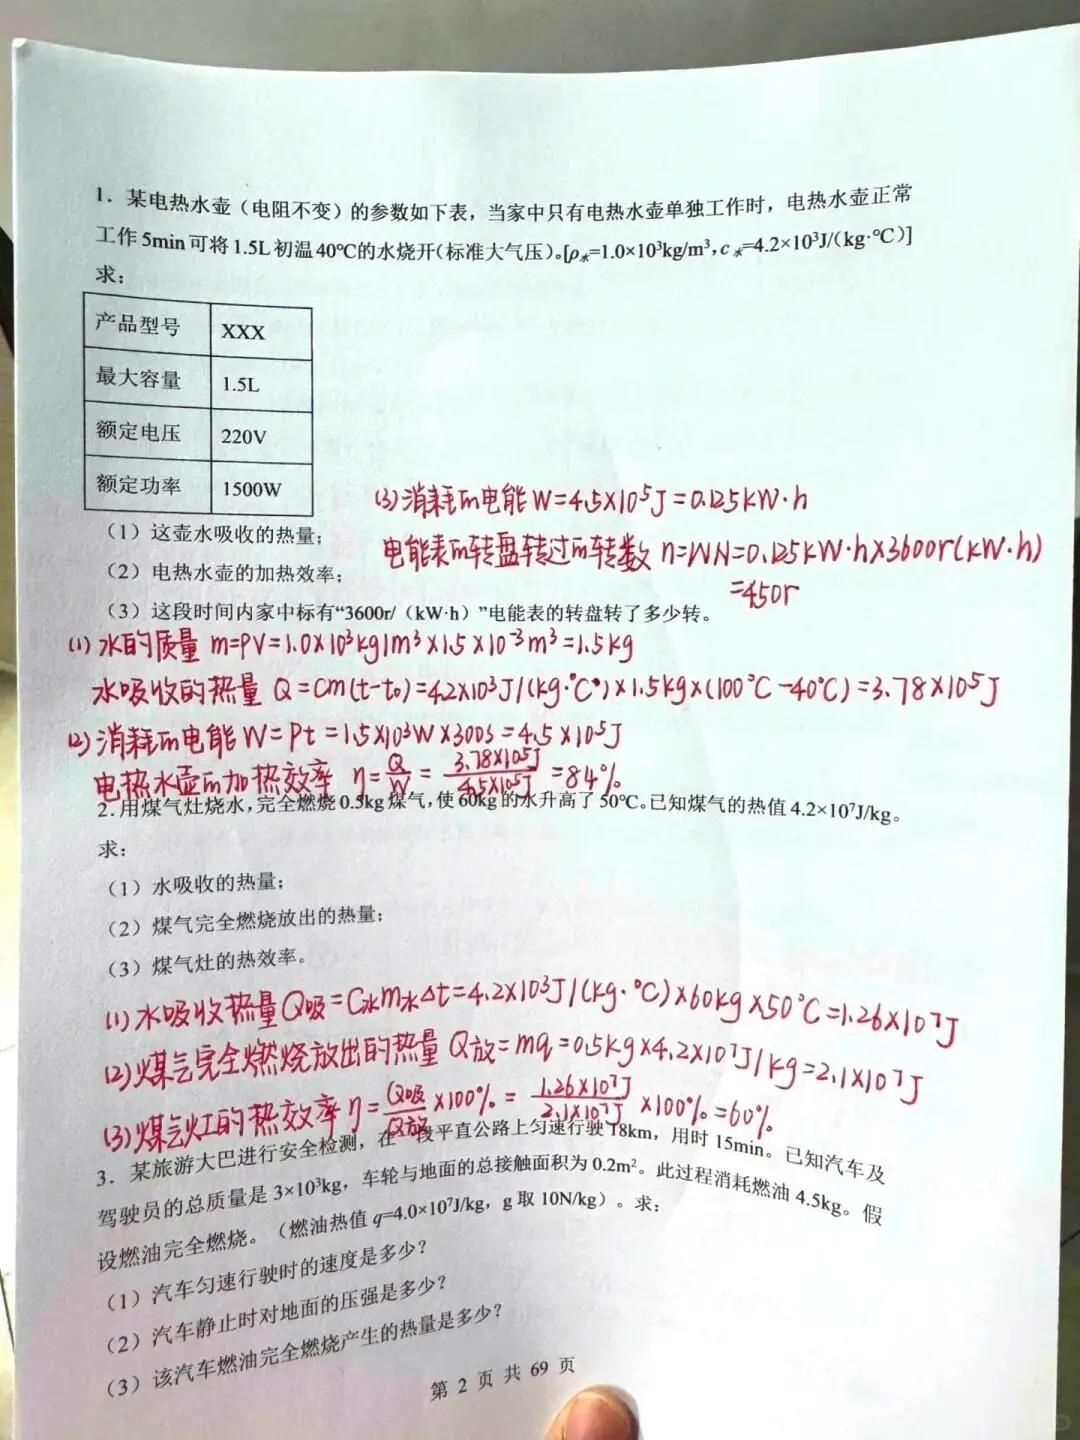 1. 某电热水壶（电阻不变）的参数如下表，当家中只有电热水壶单独工作时，电热水壶正常
工作5min可将1.5L初温40℃的水烧开(标准大气压)。[ρ水=1.0×10³kg/m³，c水=4.2×10³J/(kg·℃)]
求：
产品型号 XXX
最大容量 1.5L
额定电压 220V
额定功率 1500W
(3)消耗的电能W=4.5×10⁵J=0.125kW·h
（1）这壶水吸收的热量；
电能表的转盘转过的转数 n=WN=0.125kW·h×3600r(kW·h)
（2）电热水壶的加热效率；
=450r
（3）这段时间内家中标有“3600r/（kW·h）”电能表的转盘转了多少转。
(1)水的质量 m=ρV=1.0×10³kg/m³×1.5×10⁻³m³=1.5kg
水吸收的热量 Q=cm(t-t₀)=4.2×10³J/(kg·℃)×1.5kg×(100℃-40℃)=3.78×10⁵J
(2)消耗的电能W=Pt=1.5×10³W×300s=4.5×10⁵J
电热水壶的加热效率 η=Q/W=3.78×10⁵J/4.5×10⁵J=84%
2. 用煤气灶烧水，完全燃烧0.5kg煤气，使60kg的水升高了50℃。已知煤气的热值4.2×10⁷J/kg。
求：
（1）水吸收的热量；
（2）煤气完全燃烧放出的热量；
（3）煤气灶的热效率。
(1)水吸收热量Q吸=C水m水Δt=4.2×10³J/(kg·℃)×60kg×50℃=1.26×10⁷J
(2)煤气完全燃烧放出的热量 Q放=mq=0.5kg×4.2×10⁷J/kg=2.1×10⁷J
(3)煤气灶的热效率η=Q吸/Q放×100%=1.26×10⁷J/2.1×10⁷J×100%=60%
3. 某旅游大巴进行安全检测，在一段平直公路上匀速行驶18km，用时15min。已知汽车及
驾驶员的总质量是3×10³kg，车轮与地面的总接触面积为0.2m²。此过程消耗燃油4.5kg。假
设燃油完全燃烧。（燃油热值q=4.0×10⁷J/kg，g取10N/kg）。求：
（1）汽车匀速行驶时的速度是多少？
（2）汽车静止时对地面的压强是多少？
（3）该汽车燃油完全燃烧产生的热量是多少？
第 2 页 共 69 页